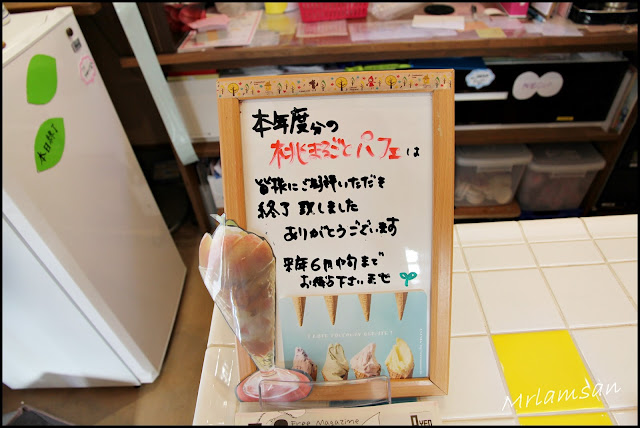 本年度分の
桃まるごとパフェは
皆様にご好評いただき
終了致しました
ありがとうございます
来年6月中旬まで
お待ち下さいませ
本日終了
Free Magazine
0YEN
Mrlamsan